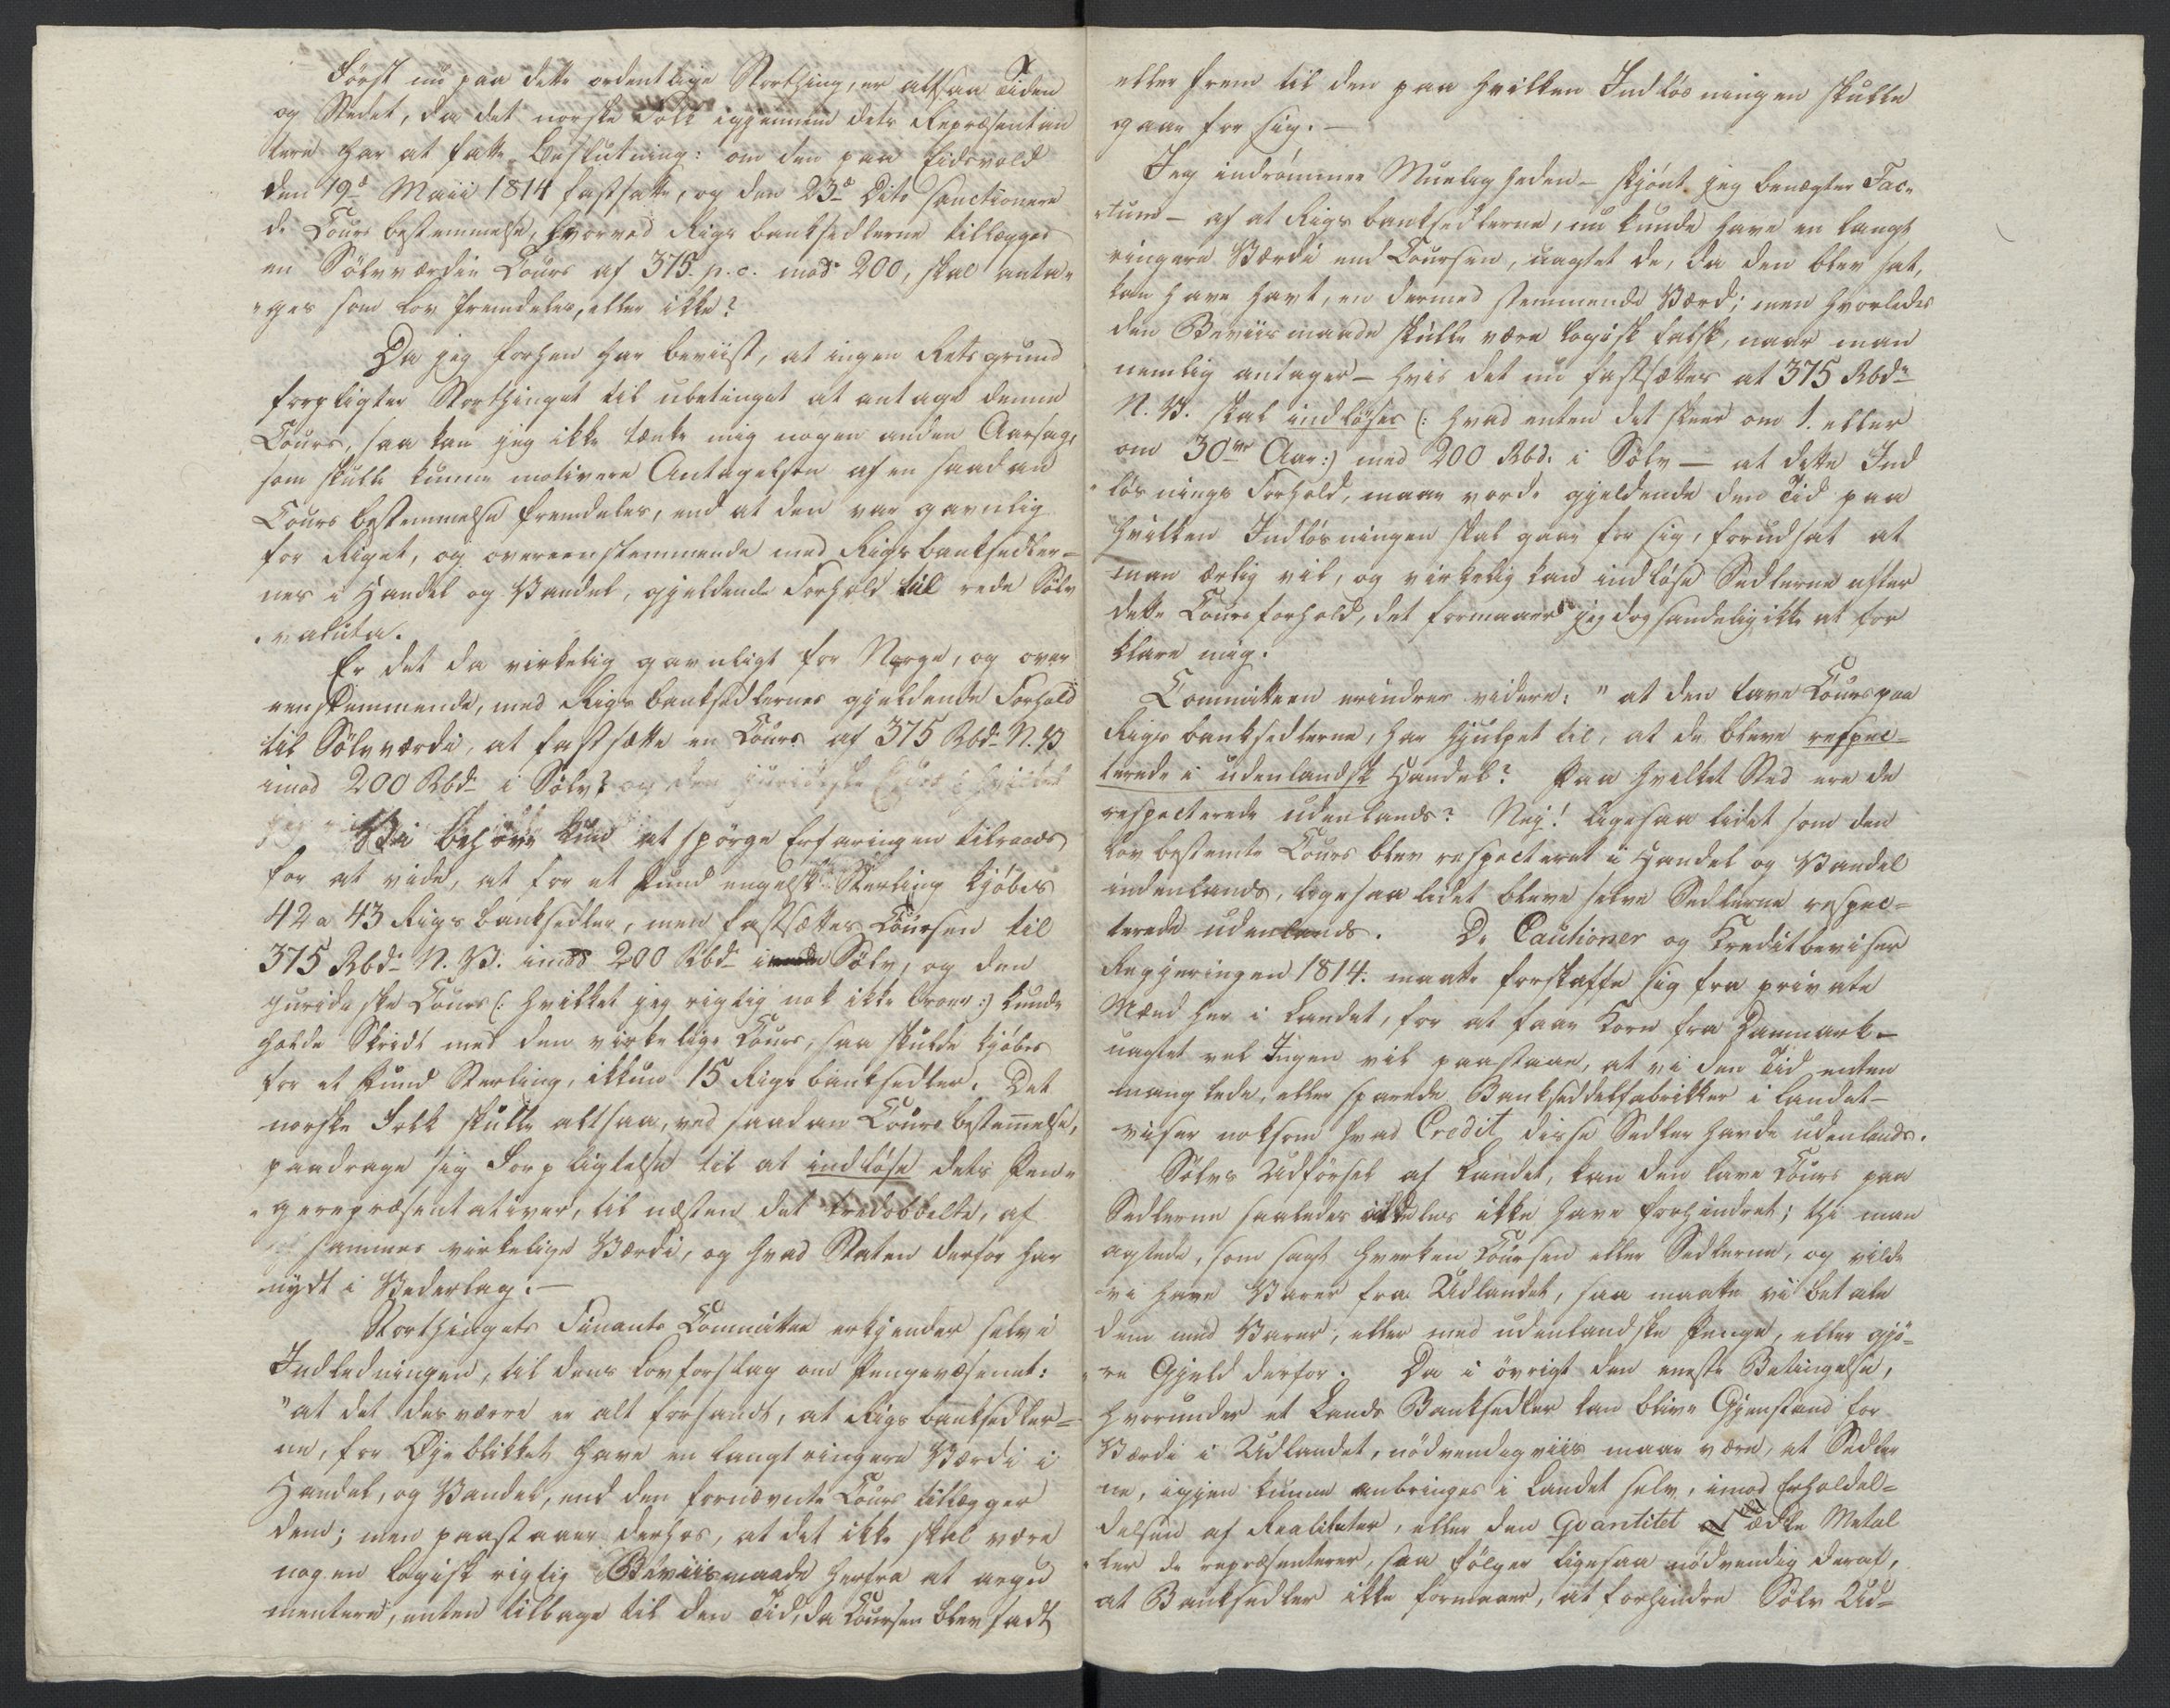 Først nu paa dette ordentlige Storthing, er altsaa Tiden
og Stedet, da det norske Folk igjennem dets Repræsentan
tere har at fatte Beslutning: om den paa Eidsvold
den 19d Maii 1814 fastsatte, og den 23d Dito sanctionere
de Cours bestemmelse, hvorved Rigs banksedlerne tillægges
en Sölvværdie Cours af 375. p. c. mod 200, skal anta„
„ges som Lov fremdeles, eller ikke?
Da jeg forhen har beviist, at ingen Retsgrund
forpligter Storthinget til ubetinget at antage denne
Cours, saa kan jeg ikke tænke mig nogen anden Aarsag,
som skulle kunne motivere Antagelsen af en saadan
Cours bestemmelse fremdeles, end at den var gavnlig
for Riget, og overeenstemmende med Rigsbanksedler-
nes i Handel og Vandel, gjeldende Forhold til rede Sölv
„valuta.
Er det da virkelig gavnligt for Norge, og over
eenstemmende, med Rigs banksedlernes gjeldende Forhold
til Sölvværdi, at fastsætte en Cours af 375 Rbd. N. V.
imod 200 Rbd. i Sölv? og den juridiske Cours (: hvilket
Vi behöve kun at spörge Erfaringen tilraads
for at vide, at for et Pund engelsk Sterling kjöbes
42 a 43 Rigs banksedler, men fastsættes Coursen til
375 Rbd. N. V. imod 200 Rbd. i Sölv, og den
juridiske Cours (: hvilket jeg rigtig nok ikke troer :) kunde
holde Skridt med den virkelige Cours, saa skulde kjöbes
for et Pund Sterling, ikkun 15 Rigs banksedler. Det
norske Folk skulle altsaa, ved saadan Cours bestemelse,
paadrage sig Forpligtelse til at indlöse dets Pen„
„gerepræsentativer, til næsten det tredobbelte, af
sammes virkelige Værdi, og hvad Staten derfor har
nydt i Vederlag. —
Storthingets Finants Committee erkjender selv i
Indledningen, til dens Lovforslag om Pengevæsenet:
"at det desværre er alt forsandt, at Rigs banksedler=
ne, for Öjeblikket have en langt ringere Værdi i
Handel, og Vandel, end den fornævnte Cours tillægger
dem; men paastaaer derhos, at det ikke skal være
nogen logisk rigtig Beviismaade herfra at argu
mentere, enten tilbage til den Tid, da Coursen blev sadt
eller frem til den paa hvilken Indlösningen skulle
gaae for sig. —
Jeg indrömmer Mueligheden – skjönt jeg benægter Fac„
„tum – af at Rigs banksedlerne, nu kunde have en langt
ringere Værdi end Coursen, uagtet de, da den blev sat,
kan have havt, en dermed stemmende Værd; men hvorledes
den Beviismaade skulle være logisk falsk, naar man
nemlig antager – hvis det nu fastsættes at 375 Rbd.
N. V. skal indlöses (: hvad enten det skeer om 1. eller
om 30ve Aar :) med 200 Rbd. i Sölv — at dette Ind
„lösnings Forhold, maae vorde gjeldende den Tid paa
hvilken Indlösningen skal gaae for sig, forudsat at
man ærlig vil, og virkelig kan indlöse Sedlerne efter
dette Coursforhold, det formaaer jeg dog sandelig ikke at for
klare mig.
Committeen erindrer videre: " at den lave Cours paa
Rigs banksedlerne, har hjulpet til, at de bleve respec=
terede i udenlandsk Handel? Paa hvilket Sted ere de
respecterede udenlands? Nej! ligesaa lidet som den
lov bestemte Cours blev respecteret i Handel og Vandel
indenlands, ligesaa lidet bleve selve Sedlerne respec=
terede udenlands. De Cautioner og Kreditbeviser
Regjeringen 1814. maatte forskaffe sig fra private
Mænd her i Landet, for at faae Korn fra Danmark –
uagtet vel Ingen vil paastaae, at vi den Tid enten
manglede, eller sparede Bankseddelfabrikker i Landet –
viser noksom hvad Credit disse Sedler havde udenlands.
Sölvs Udförsel af Landet, kan den lave Cours paa
Sedlerne saaledes ikke have forhindret; thi man
agtede, som sagt hverken Coursen eller Sedlerne, og vilde
vi have Varer fra Udlandet, saa maatte vi betale
dem med Varer, eller med udenlandske Penge, eller gjö-
„re Gjeld derfor. Da i övrigt den eneste Betingelse,
hvorunder et Lands Banksedler kan blive Gjenstand for
Værdi i Udlandet, nödvendigviis maae være, at Sedler
ne, igjen kunne anbringes i Landet selv, imod Erholdel=
delsen af Realiteter, eller den Qvantitet ædle Metal
„ler de repræsenterer, saa fölger ligesaa nödvendig deraf,
at Banksedler ikke formaaer, at forhindre Sölv Ud=